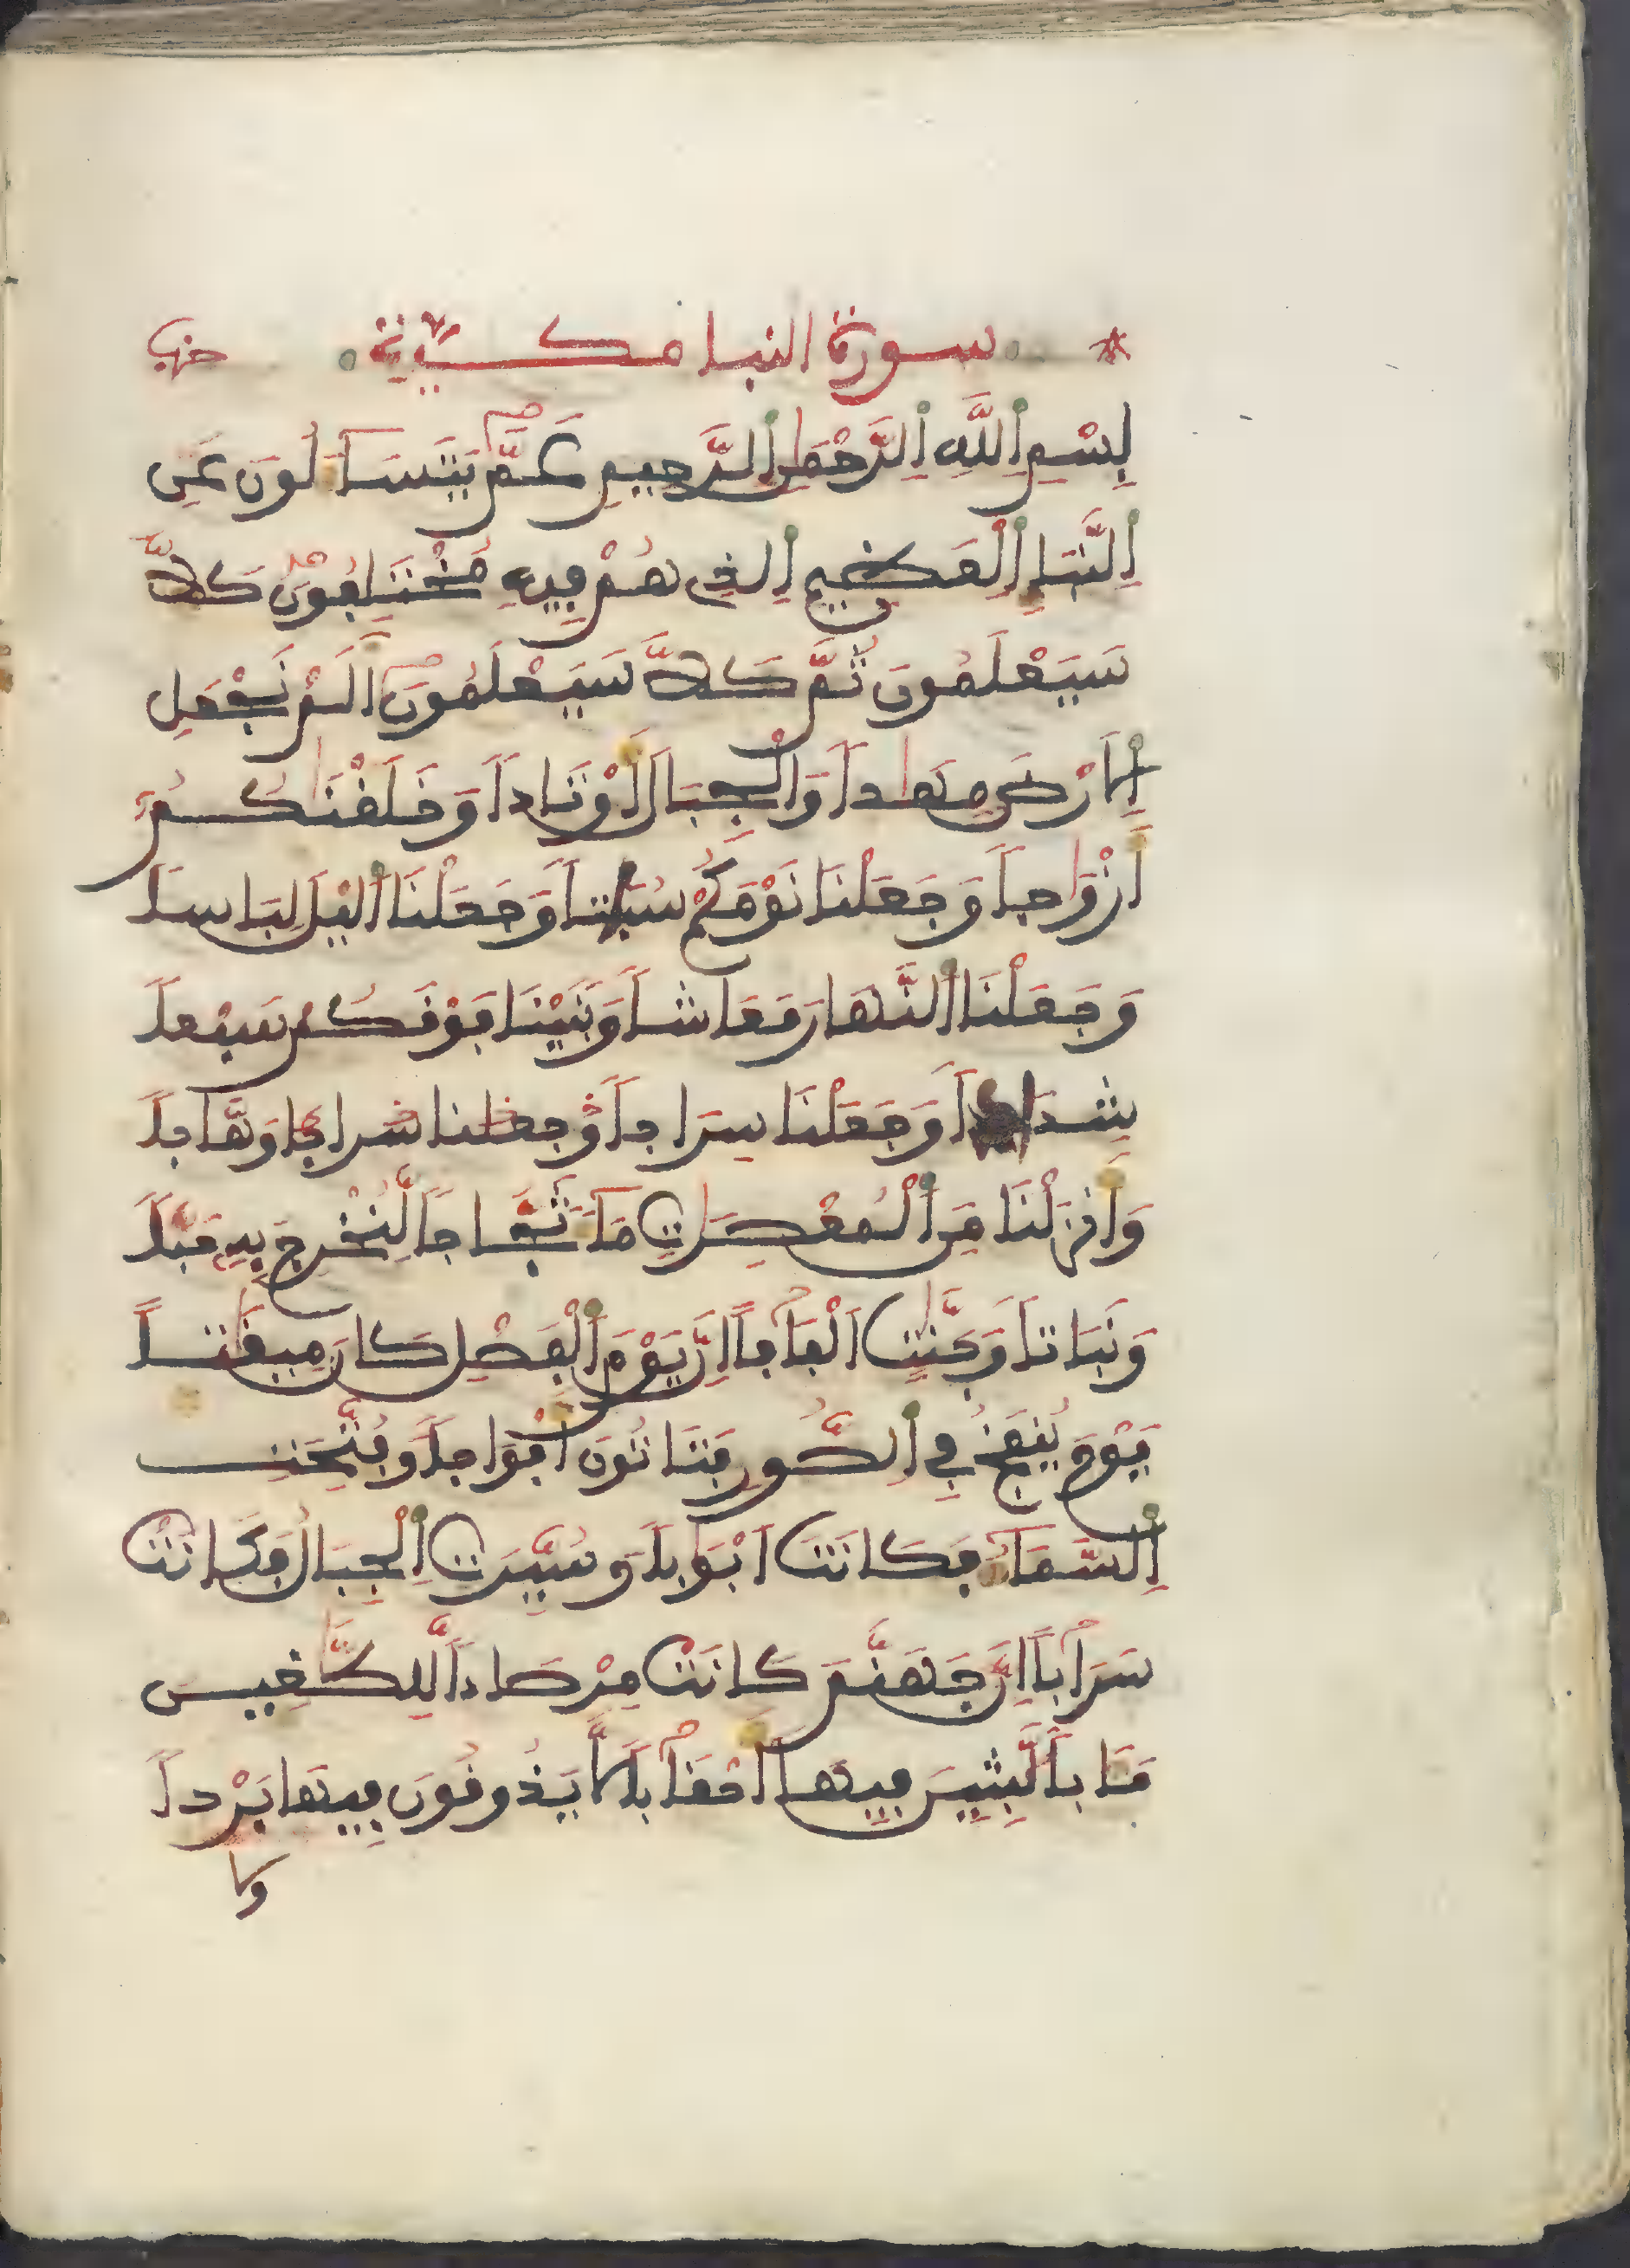 سورة النبإ مكية حزب
بِسْمِ اِللَّهِ اِلرَّحْمَٰنِ اِلرَّحِيمِ عَمَّ يَتَسَآءَلُونَ عَنِ
اِلنَّبَإِ اِلْعَظِيمِ اِلذِے هُمْ فِيهِ مُخْتَلِفُونَ كَلَّا
سَيَعْلَمُونَ ثُمَّ كَلَّا سَيَعْلَمُونَ أَلَمْ نَجْعَلِ
اِلَارْضَ مِهَٰداً وَالْجِبَالَ أَوْتَاداً وَخَلَقْنَٰكُمُۥٓ
أَزْوَٰجاً وَجَعَلْنَا نَوْمَكُمْ سُبَاتاً وَجَعَلْنَا اَليْلَ لِبَاساً
وَجَعَلْنَا اَلنَّهَارَ مَعَاشاً وَبَنَيْنَا فَوْقَكُمْ سَبْعاً
شِدَاداً وَجَعَلْنَا سِرَاجاً وَجعلنا سراجا وَهَّاجاً
وَأَنزَلْنَا مِنَ اَلْمُعْصِرَٰتِ مَآءً ثَجَّاجاً لِّنُخْرِجَ بِهِۦ حَبّاً
وَنَبَاتاً وَجَنَّٰتٍ اَلْفَافاً اِنَّ يَوْمَ اَلْفَصْلِ كَانَ مِيقَٰتاً
يَوْمَ يُنفَخُ فِے اِلصُّورِ فَتَاتُونَ أَفْوَاجاً وَفُتِّحَتِ
اِلسَّمَآءُ فَكَانَتَ اَبْوَٰباً وَسُيِّرَتِ اِلْجِبَالُ فَكَانَتْ
سَرَاباً اِنَّ جَهَنَّمَ كَانَتْ مِرْصَاداً لِّلطَّٰغِينَ
مَـَٔاباً لَّٰبِثِينَ فِيهَآ أَحْقَاباً لَّا يَذُوقُونَ فِيهَا بَرْداً
ولا